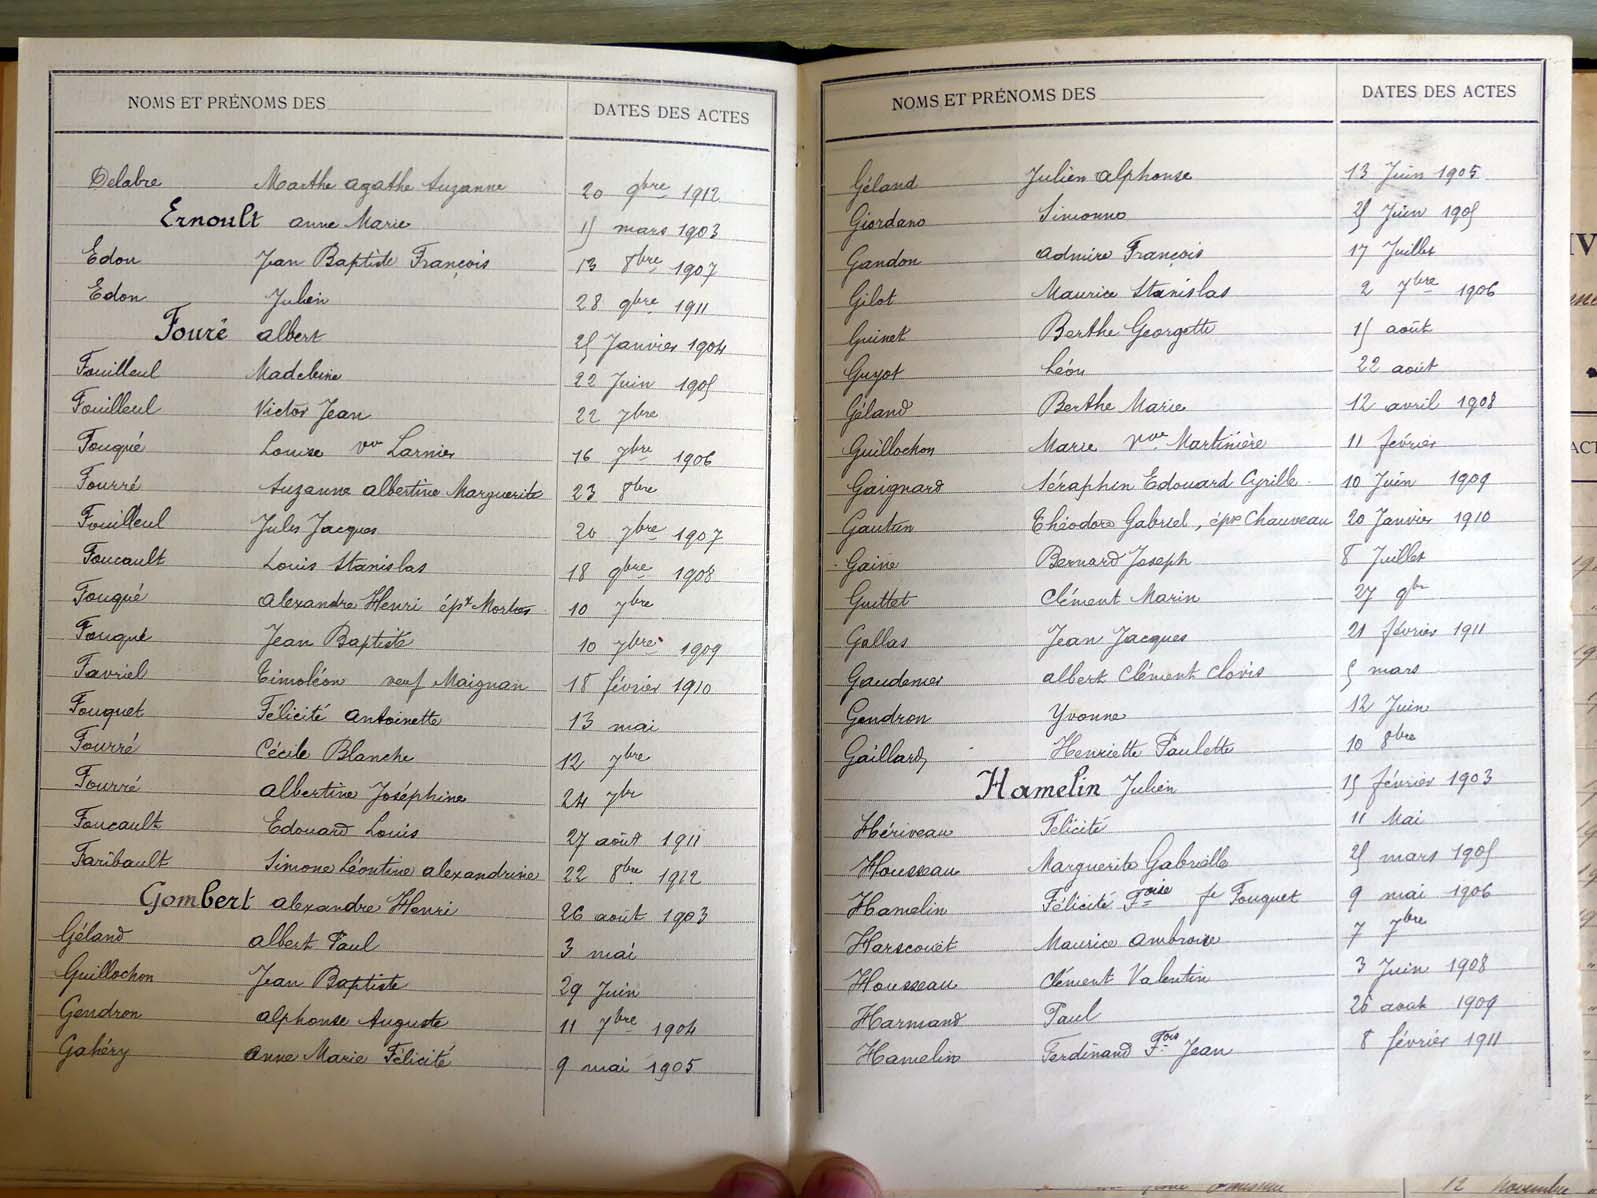 NOMS ET PRÉNOMS DES DATES DES ACTES
Delabre Marthe agathe Suzanne 20 9bre 1912
Ernoult anne Marie 15 mars 1903
Edon Jean Baptiste François 13 8bre 1907
Edon Julien 28 9bre 1911
Fouré albert 25 Janvier 1904
Fouilleul Madeleine 22 Juin 1905
Fouilleul Victor Jean 22 7bre
Fouqué Louise vve Larnier 16 7bre 1906
Fourré Suzanne albertine Marguerite 23 8bre
Fouilleul Jules Jacques 20 7bre 1907
Foucault Louis Stanislas 18 9bre 1908
Fouqué alexandre Henri épx 10 7bre
Fouqué Jean Baptiste 10 7bre 1909
Favriel Timoléon veuf Maignan 18 février 1910
Fouquet Félicité antoinette 13 mai
Fourré Cécile Blanche 12 7bre
Fourré albertine Joséphine 24 7br
Foucault Edouard Louis 27 août 1911
Faribault Simone Léontine alexandrine 22 8bre 1912
Gombert alexandre Henri 26 août 1903
Géland albert Paul 3 mai
Guillochon Jean Baptiste 29 Juin
Gendron alphonse Auguste 11 7bre 1904
Gahéry anne Marie Félicité 9 mai 1905
NOMS ET PRÉNOMS DES DATES DES ACTES
Géland Julien alphonse 13 Juin 1905
Giordano Simonne 25 Juin 1905
Gandon admire François 17 Juillet
Gilot Maurice Stanislas 2 7bre 1906
Guinet Berthe Georgette 15 août
Guyot Léon 22 août
Géland Berthe Marie 12 avril 1908
Guillochon Marie vve Martinière 11 février
Gaignard Séraphin Edouard Cyrille 10 Juin 1909
Gautun Théodore Gabriel, épx Chauveau 20 Janvier 1910
Gaine Bernard Joseph 8 Juillet
Guittet Clément Marin 27 9br
Gallas Jean Jacques 21 février 1911
Gaudemer albert Clément Clovis 5 mars
Gendron Yvonne 12 Juin
Gaillard, Henriette Paulette 10 8bre
Hamelin Julien 15 février 1903
Hériveau Félicité 11 Mai
Housseau Marguerite Gabrielle 25 mars 1905
Hamelin Félicité Foise fe Fouquet 9 mai 1906
Harscouët Maurice ambroise 7 7bre
Housseau Clément Valentin 3 Juin 1908
Harmand Paul 26 août 1909
Hamelin Ferdinand Fois Jean 8 février 1911
12 novembre